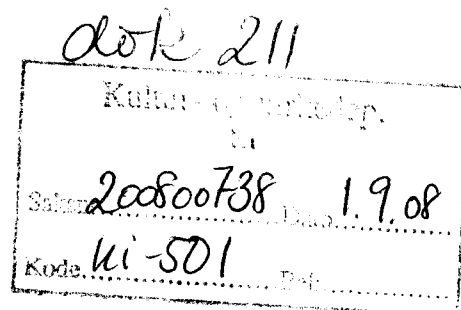 dok 211
Kultur- og kirkedep.
Saksnr. 200800738 Dato. 1.9.08
Kode. Ki-501